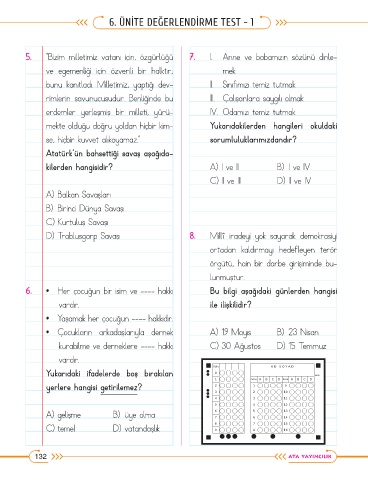 6. ÜNİTE DEĞERLENDİRME TEST - 1
5. "Bizim milletimiz vatanı için, özgürlüğü
ve egemenliği için özverili bir halktır;
bunu kanıtladı. Milletimiz, yaptığı dev-
rimlerin savunucusudur. Benliğinde bu
erdemler yerleşmiş bir milleti, yürü-
mekte olduğu doğru yoldan hiçbir kim-
se, hiçbir kuvvet alıkoyamaz."
Atatürk'ün bahsettiği savaş aşağıda-
kilerden hangisidir?
A) Balkan Savaşları
B) Birinci Dünya Savaşı
C) Kurtuluş Savaşı
D) Trablusgarp Savaşı
6. • Her çocuğun bir isim ve ---- hakkı
vardır.
• Yaşamak her çocuğun ---- hakkıdır.
• Çocukların arkadaşlarıyla dernek
kurabilme ve derneklere ---- hakkı
vardır.
Yukarıdaki ifadelerde boş bırakılan
yerlere hangisi getirilemez?
A) gelişme B) üye olma
C) temel D) vatandaşlık
7. I. Anne ve babamızın sözünü dinle-
mek
II. Sınıfımızı temiz tutmak
III. Çalışanlara saygılı olmak
IV. Odamızı temiz tutmak
Yukarıdakilerden hangileri okuldaki
sorumluluklarımızdandır?
A) I ve II B) I ve IV
C) II ve III D) II ve IV
8. Millî iradeyi yok sayarak demokrasiyi
ortadan kaldırmayı hedefleyen terör
örgütü, hain bir darbe girişiminde bu-
lunmuştur.
Bu bilgi aşağıdaki günlerden hangisi
ile ilişkilidir?
A) 19 Mayıs B) 23 Nisan
C) 30 Ağustos D) 15 Temmuz
132
ATA YAYINCILIK